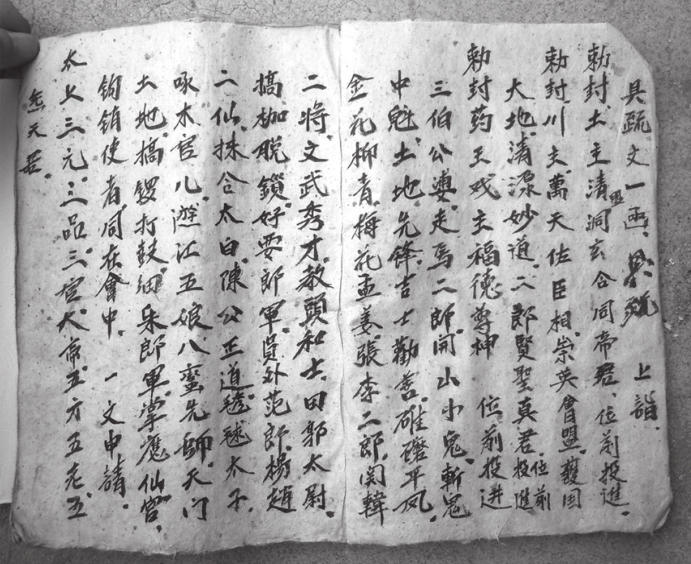 具疏文一函 上詣
勅封土主清源洞玄合同帝君位前投進
勅封川主萬天佐臣相崇英會盟護国
大地清源妙道二郎賢聖真君位前投進
勅封药王戏主福德尊神 位前投進
三伯公婆走馬二郎開山小鬼斬鬼
中魁土地先鋒吉士勸善碓磨平风
金花柳青梅花孟姜張李二郎関韓
二将文武秀才教頭和士田郭太尉
搞枷脱鎖好耍郎軍員外范郎楊趙
二仙抹合太白陳公正道毬太子
啄木官儿遊江五娘八蠻先師天门
土地搞锣打鼓細朵郎軍掌應仙官
鈎銷使者同在會中 一文申請
太上三元三品三官大帝五方五老五
炁天君